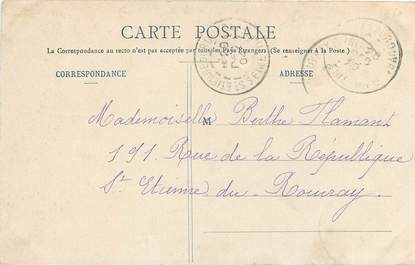 CARTE POSTALE
La Correspondance au recto n'est pas acceptée par tous les Pays Étrangers (Se renseigner à la Poste.)
CORRESPONDANCE
ADRESSE
M
Mademoiselle Berthe Flamant
191 Rue de la République
St Etienne du Rouvray